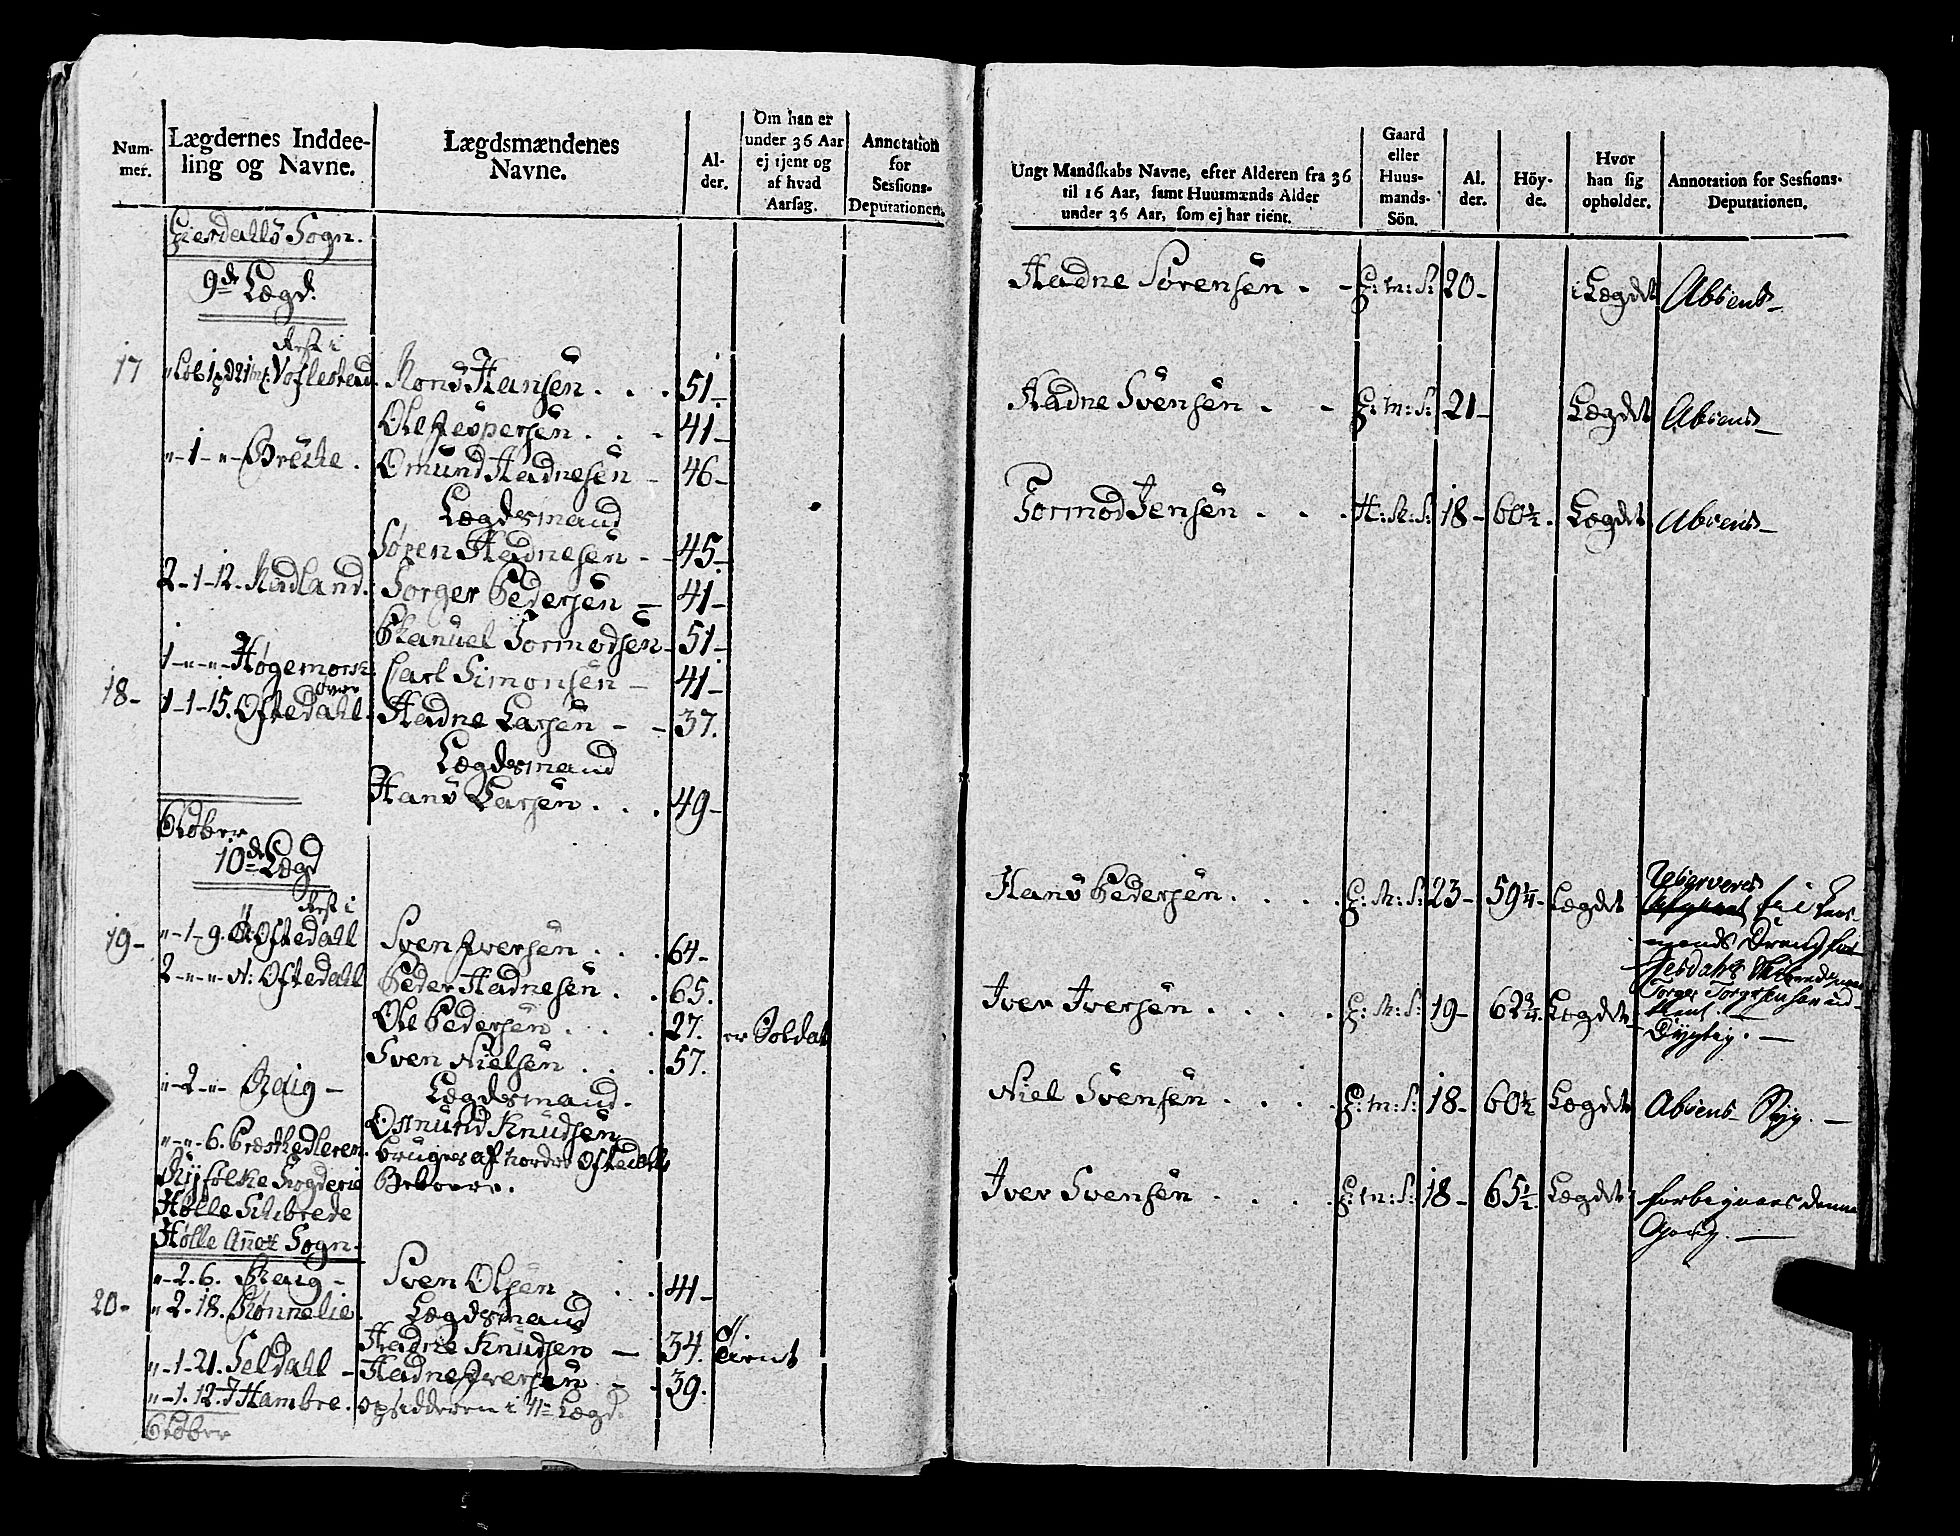 Num-
mer.
Lægdernes Inddee-
ling og Navne.
Lægdsmændenes
Navne.
Al-
der.
Om han er
under 36 Aar
ej tjent og
af hvad
Aarsag.
Annotation
for
Sessions-
Deputationen.
Giesdahls Sogn.
9de Lægd.
Rest i
17 Voflestad. Hansen . . . 51-
Ole Jespersen . . - 41-
"-1-"- Breche. Omund Hadnesen - 46-
Lægdsmand
Sören Hadnesen - - 45-
2-1-12. Madland. Torger Pedersen - 41-
Emanuel Tormodsen - 51-
1-"-"- Høgemork. Carl Simonsen - 41-
over
18- 1-1-15. Oftedahl. Hadne Larsen - - 37.
Lægdsmand
Hans Larsen . . . 49-
October
10de Lægd
Rest i
19- "-1-9. Oftedahl Sven Iversen . . . 64-
2-"-"- N: Oftedahl Peder Hadnesen . . 65.
Ole Pedersen . . . 27. er Soldat
Sven Nielsen . . . 57.
"-2-"- Lægdsmand.
Osmund Knudsen
"-"-6. Præsthedleren. bruges af nordre Oftedahls
Ryfølke Fogderie Beboere.
Hølle Schibrede
Hølle Annex Sogn.
"-2.6. Sven Olsen . . . 41-
20- "-2.18. Rønnelie. Lægdsmand
Hadne Knudsen - 34. tient
"-1-21. Seldahl - Hadne Iversen - - 39.
"-1.12. Hambre. opsidderen i 11te Lægd.
October
Ungt Mandskabs Navne, efter Alderen fra 36
til 16 Aar, samt Huusmænds Alder
under 36 Aar, som ej har tient.
Gaard
eller
Huus-
mands-
Sön.
Al.
der.
Höy-
de.
Hvor
han sig
opholder.
Annotation for Sessions-
Deputationen.
Hadne Sørensen . - G: m: S: 20- i Lægdet Absent-
Hadne Svensen . - G: m: S: 21- Lægdet Absent-
Tormod Jensen . . . H: M: S: 18- 60½. Lægdet Absent-
Hans Pedersen . . . . G: M: S: 23- 59¼ Lægdet Reserveres
Iver Iversen . . . . G: M: S: 19- 62¾. Lægdet
Dygtig. -
Niel Svensen . . . . G: m: S: 18- 60½ Lægdet Absent Syg. -
Iver Svensen . . . . G: m: S: 18- 65½. Lægdet forbigaaes denne
Gang. -